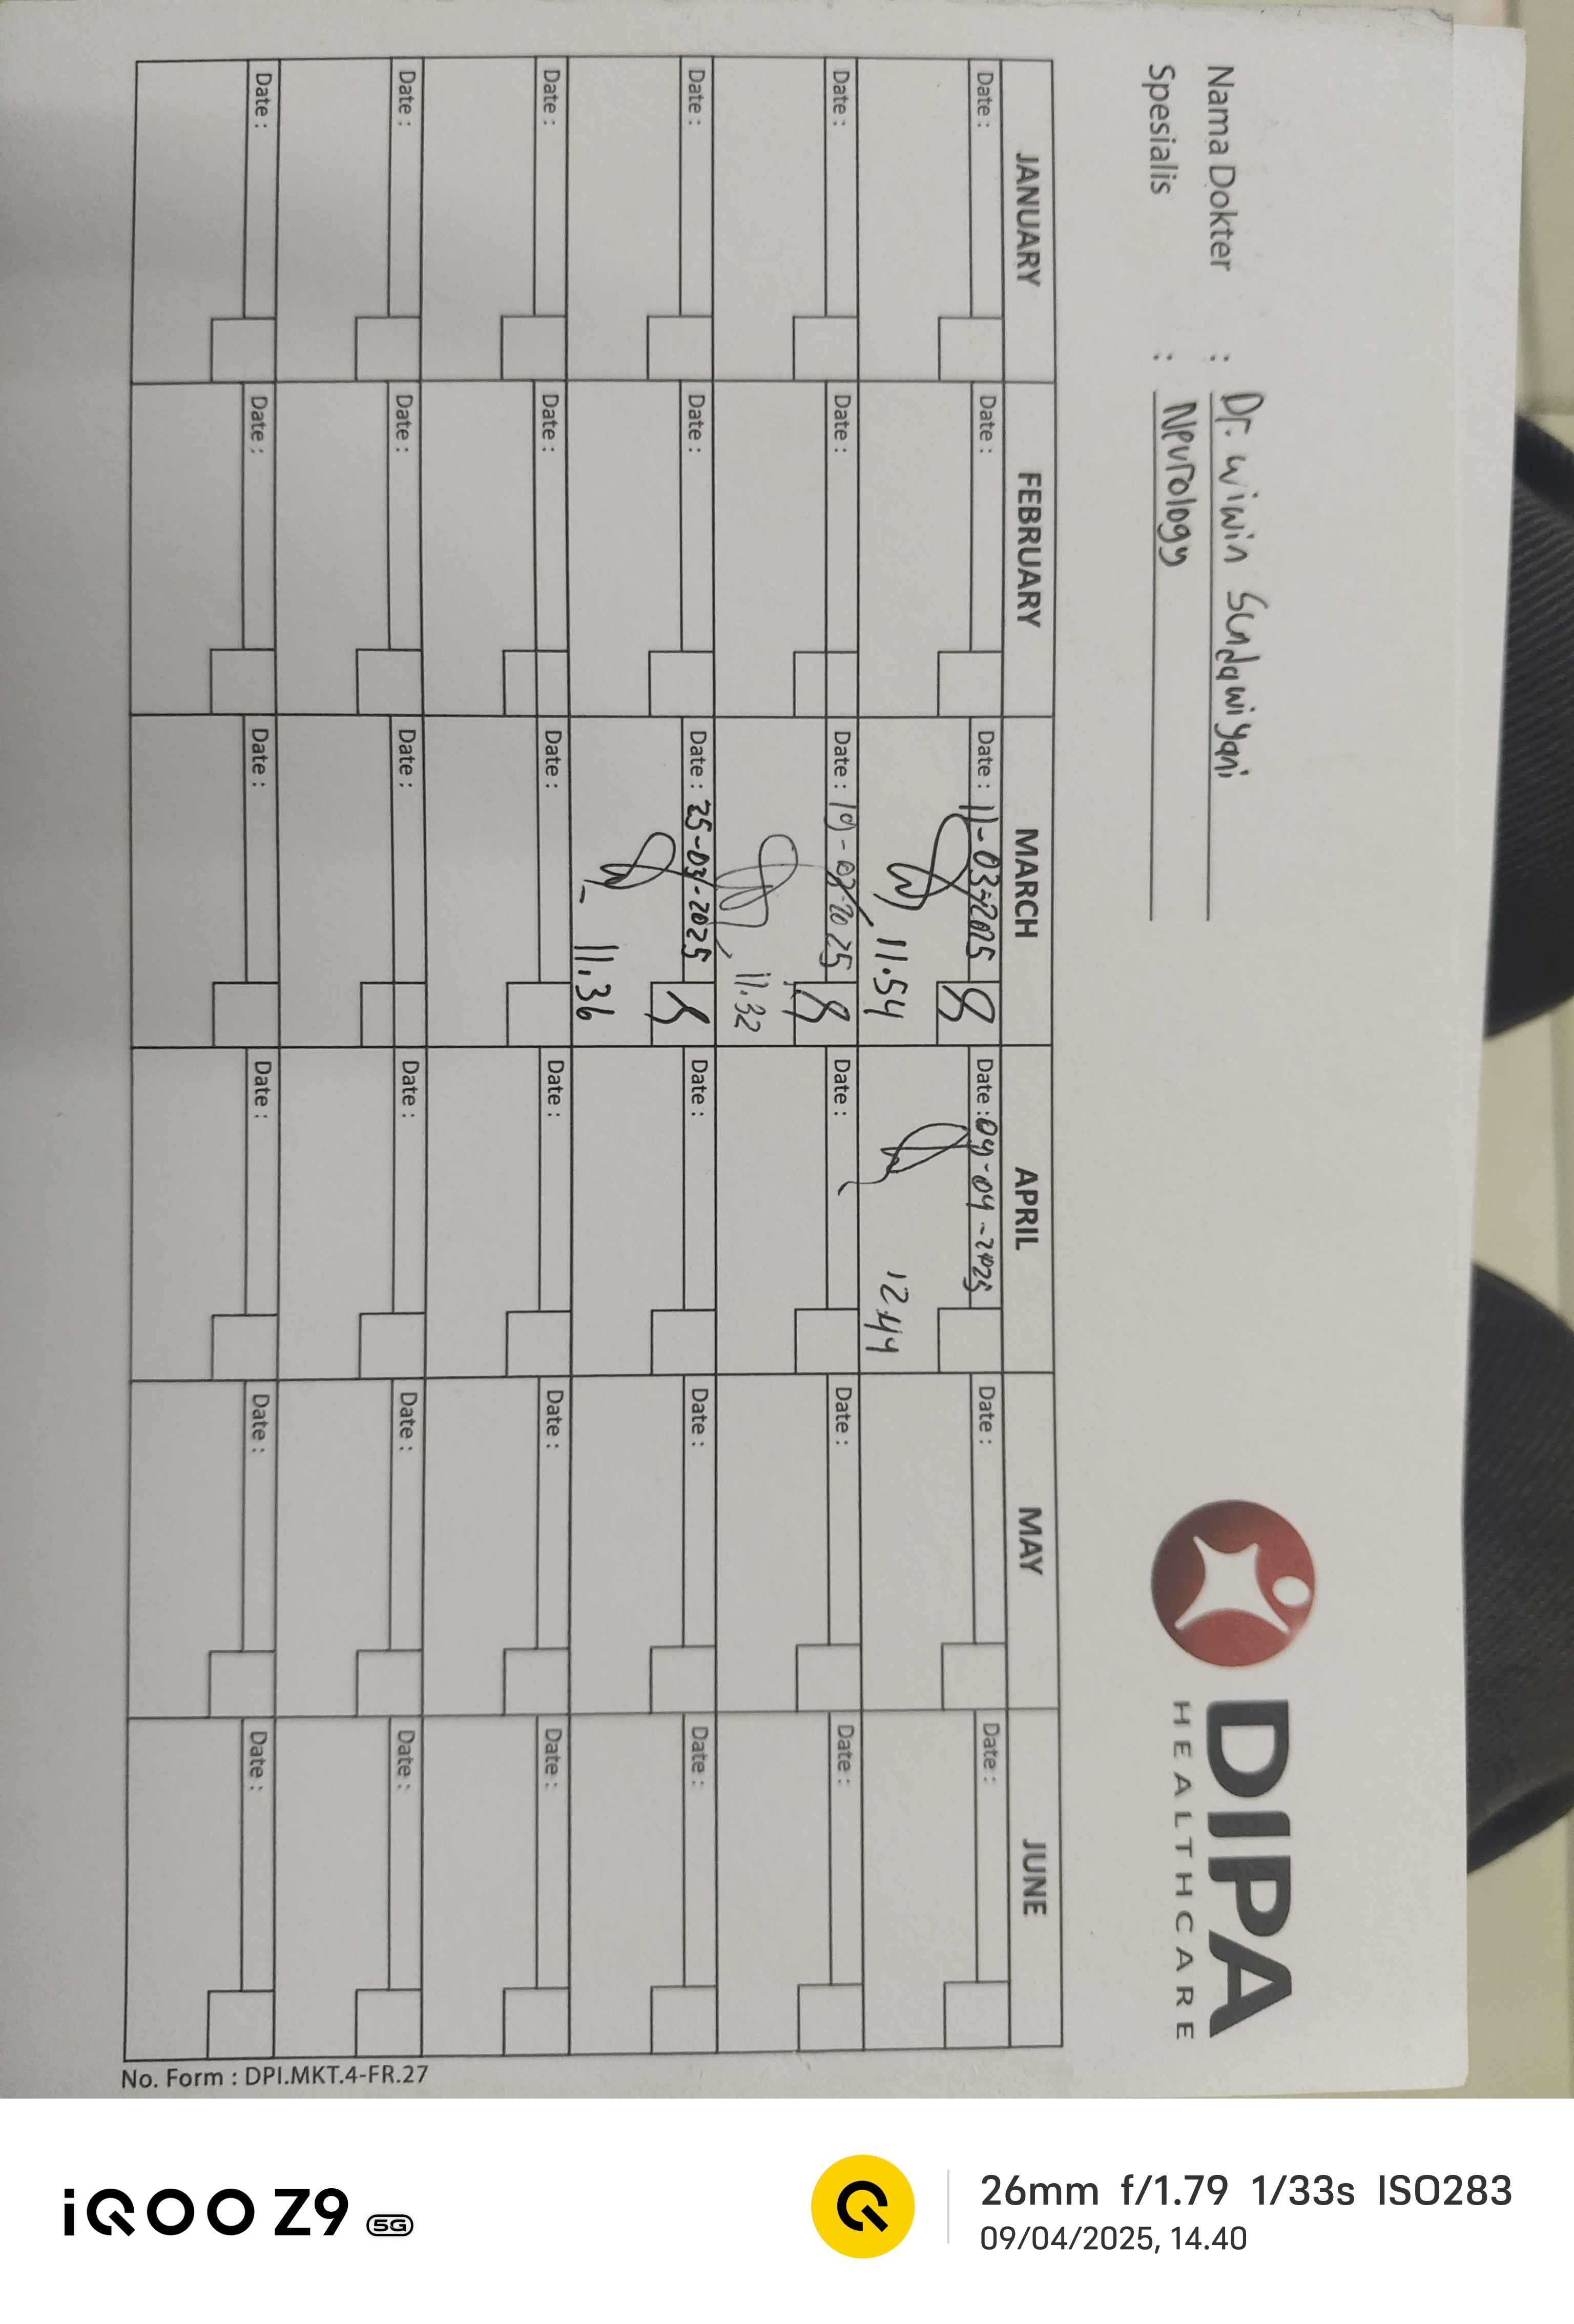 Nama Dokter : Dr. wiwin Sundawiyani
Spesialis : Neurology
DIPA
HEALTHCARE
JANUARY FEBRUARY MARCH APRIL MAY JUNE
Date : Date : Date : 11-03-2025 Date : 09-04-2025 Date : Date :
11.54 12.44
Date : Date : Date : 19-03-2025 Date : Date : Date :
11.32
Date : Date : Date : 25-03-2025 Date : Date : Date :
11.36
Date : Date : Date : Date : Date : Date :
Date : Date : Date : Date : Date : Date :
Date : Date : Date : Date : Date : Date :
No. Form : DPI.MKT.4-FR.27
iQOO Z9 5G
26mm f/1.79 1/33s ISO283
09/04/2025, 14.40